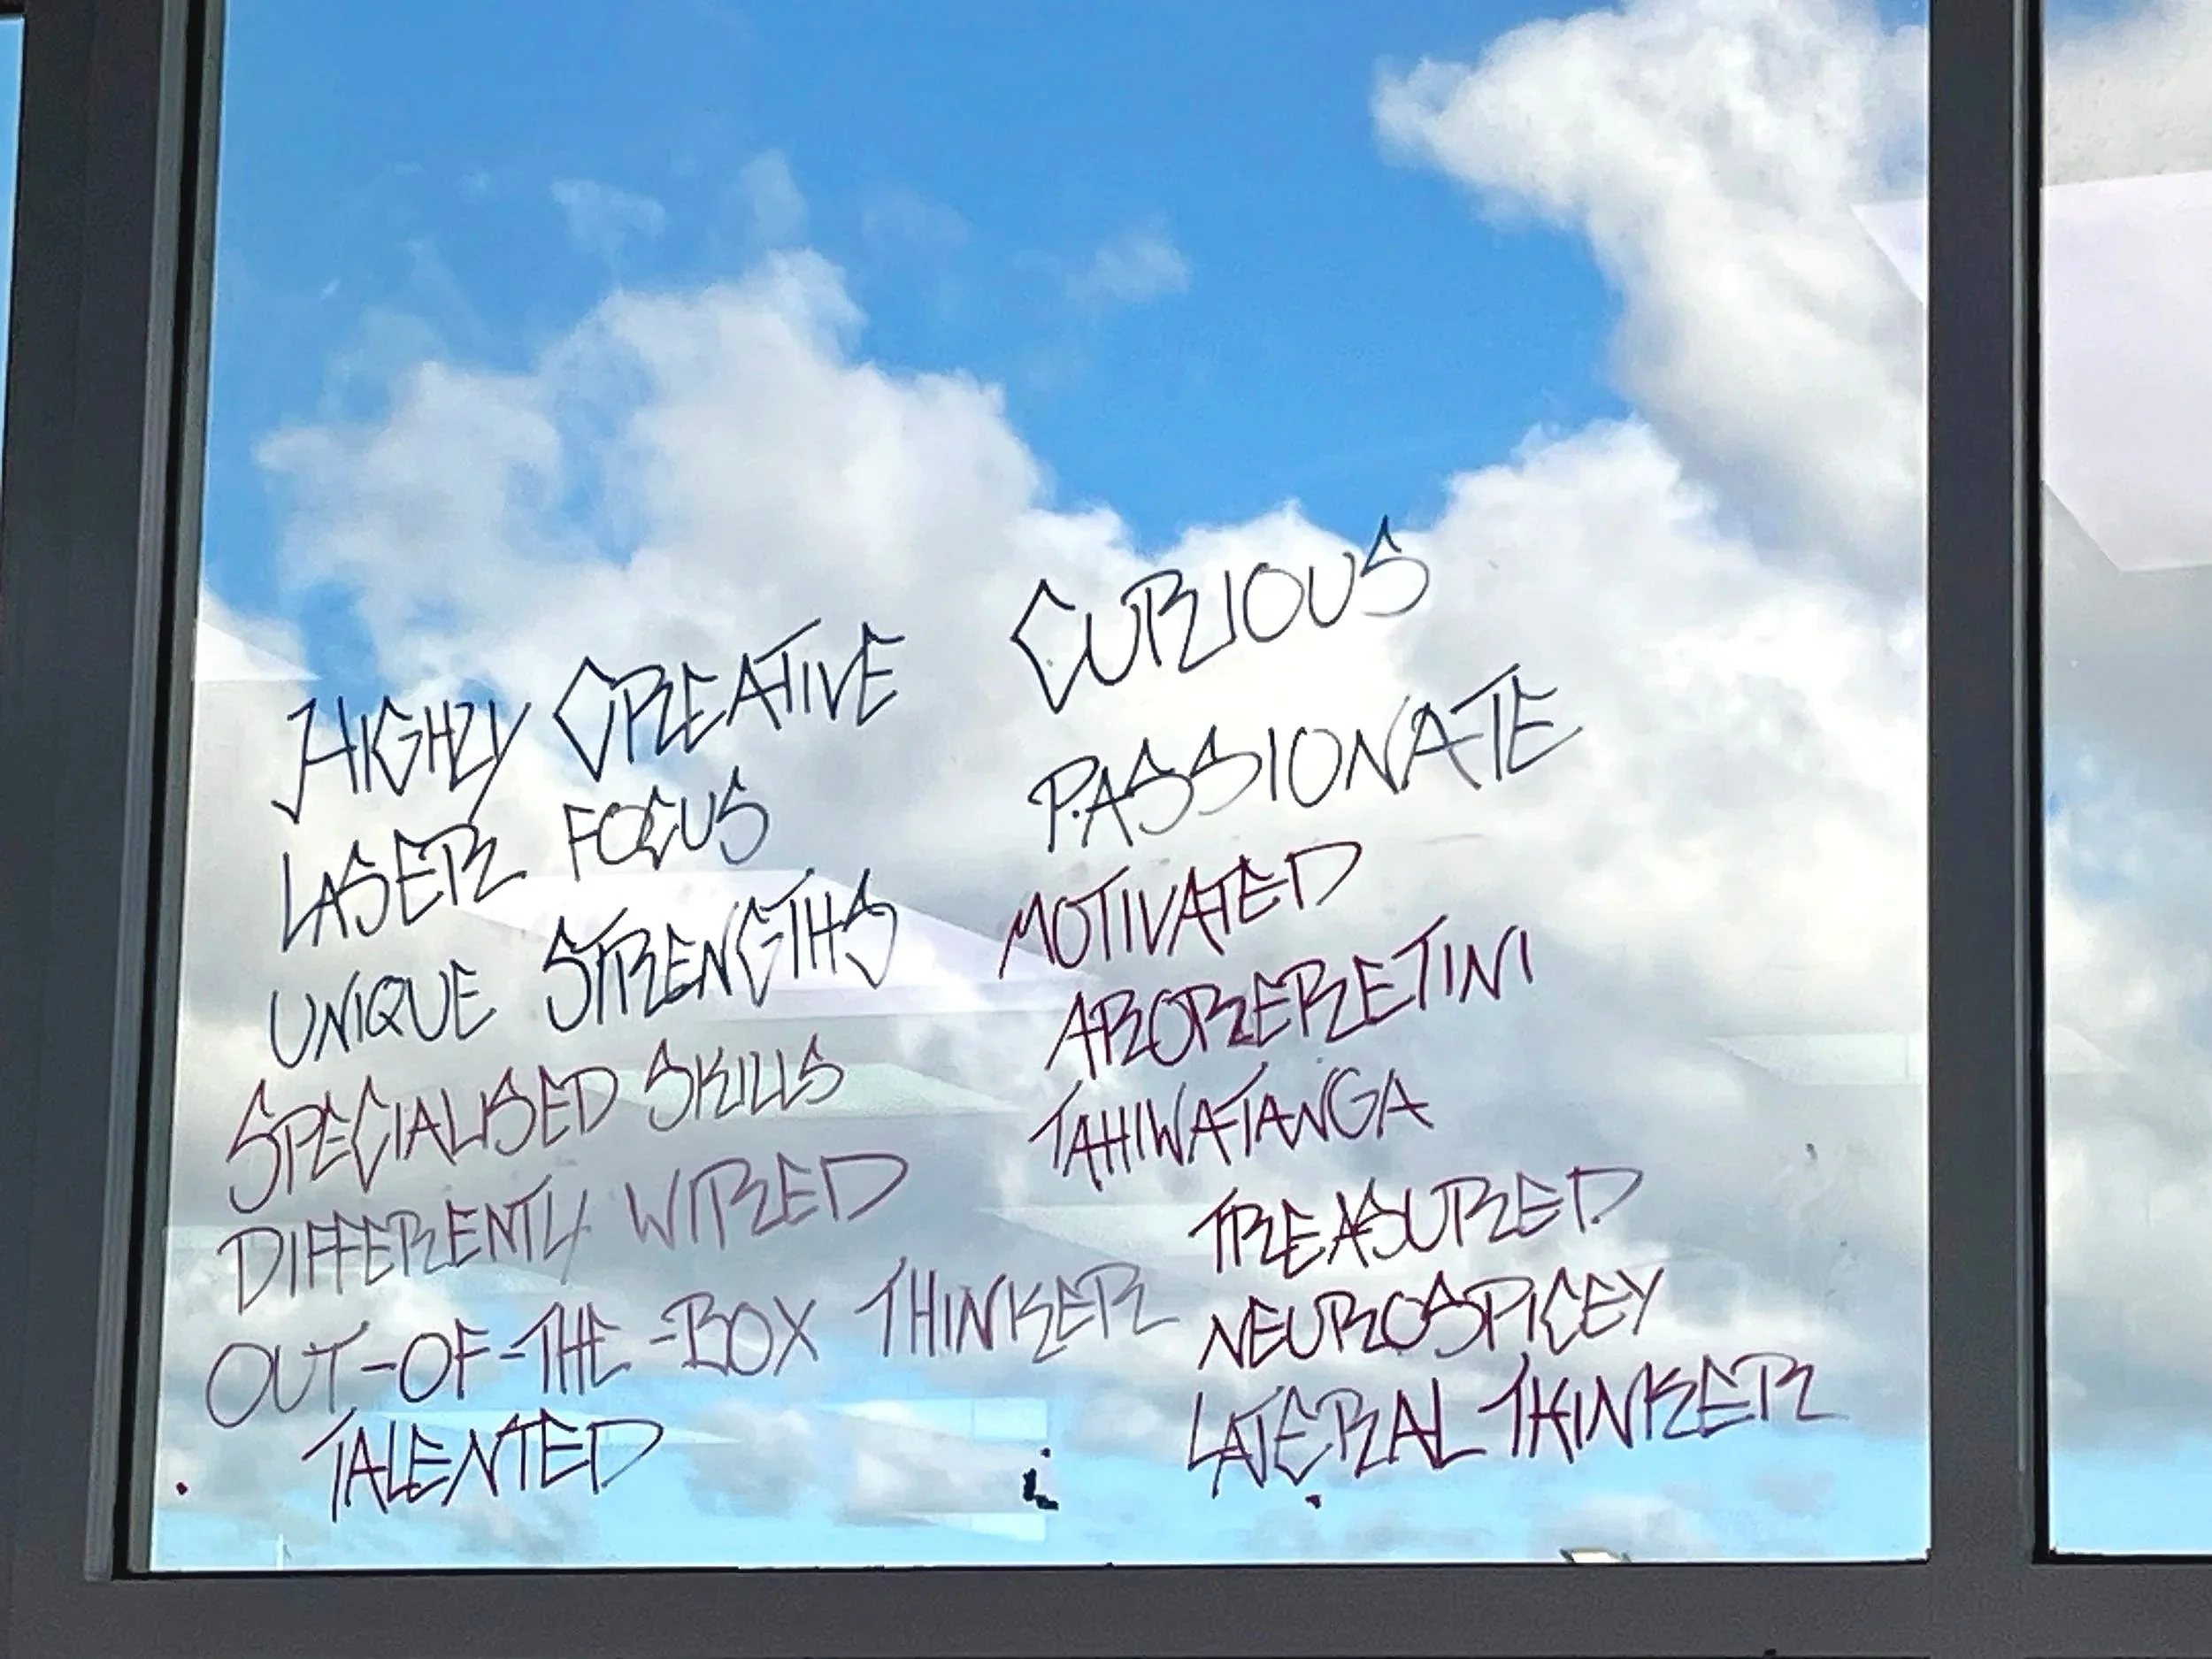 HIGHLY CREATIVE
LASER FOCUS
UNIQUE STRENGTHS
SPECIALISED SKILLS
DIFFERENTLY WIRED
OUT-OF-THE-BOX THINKER
TALENTED
CURIOUS
PASSIONATE
MOTIVATED
ARORERETINI
TAKIWATANGA
TREASURED
NEUROSPICEY
LATERAL THINKER